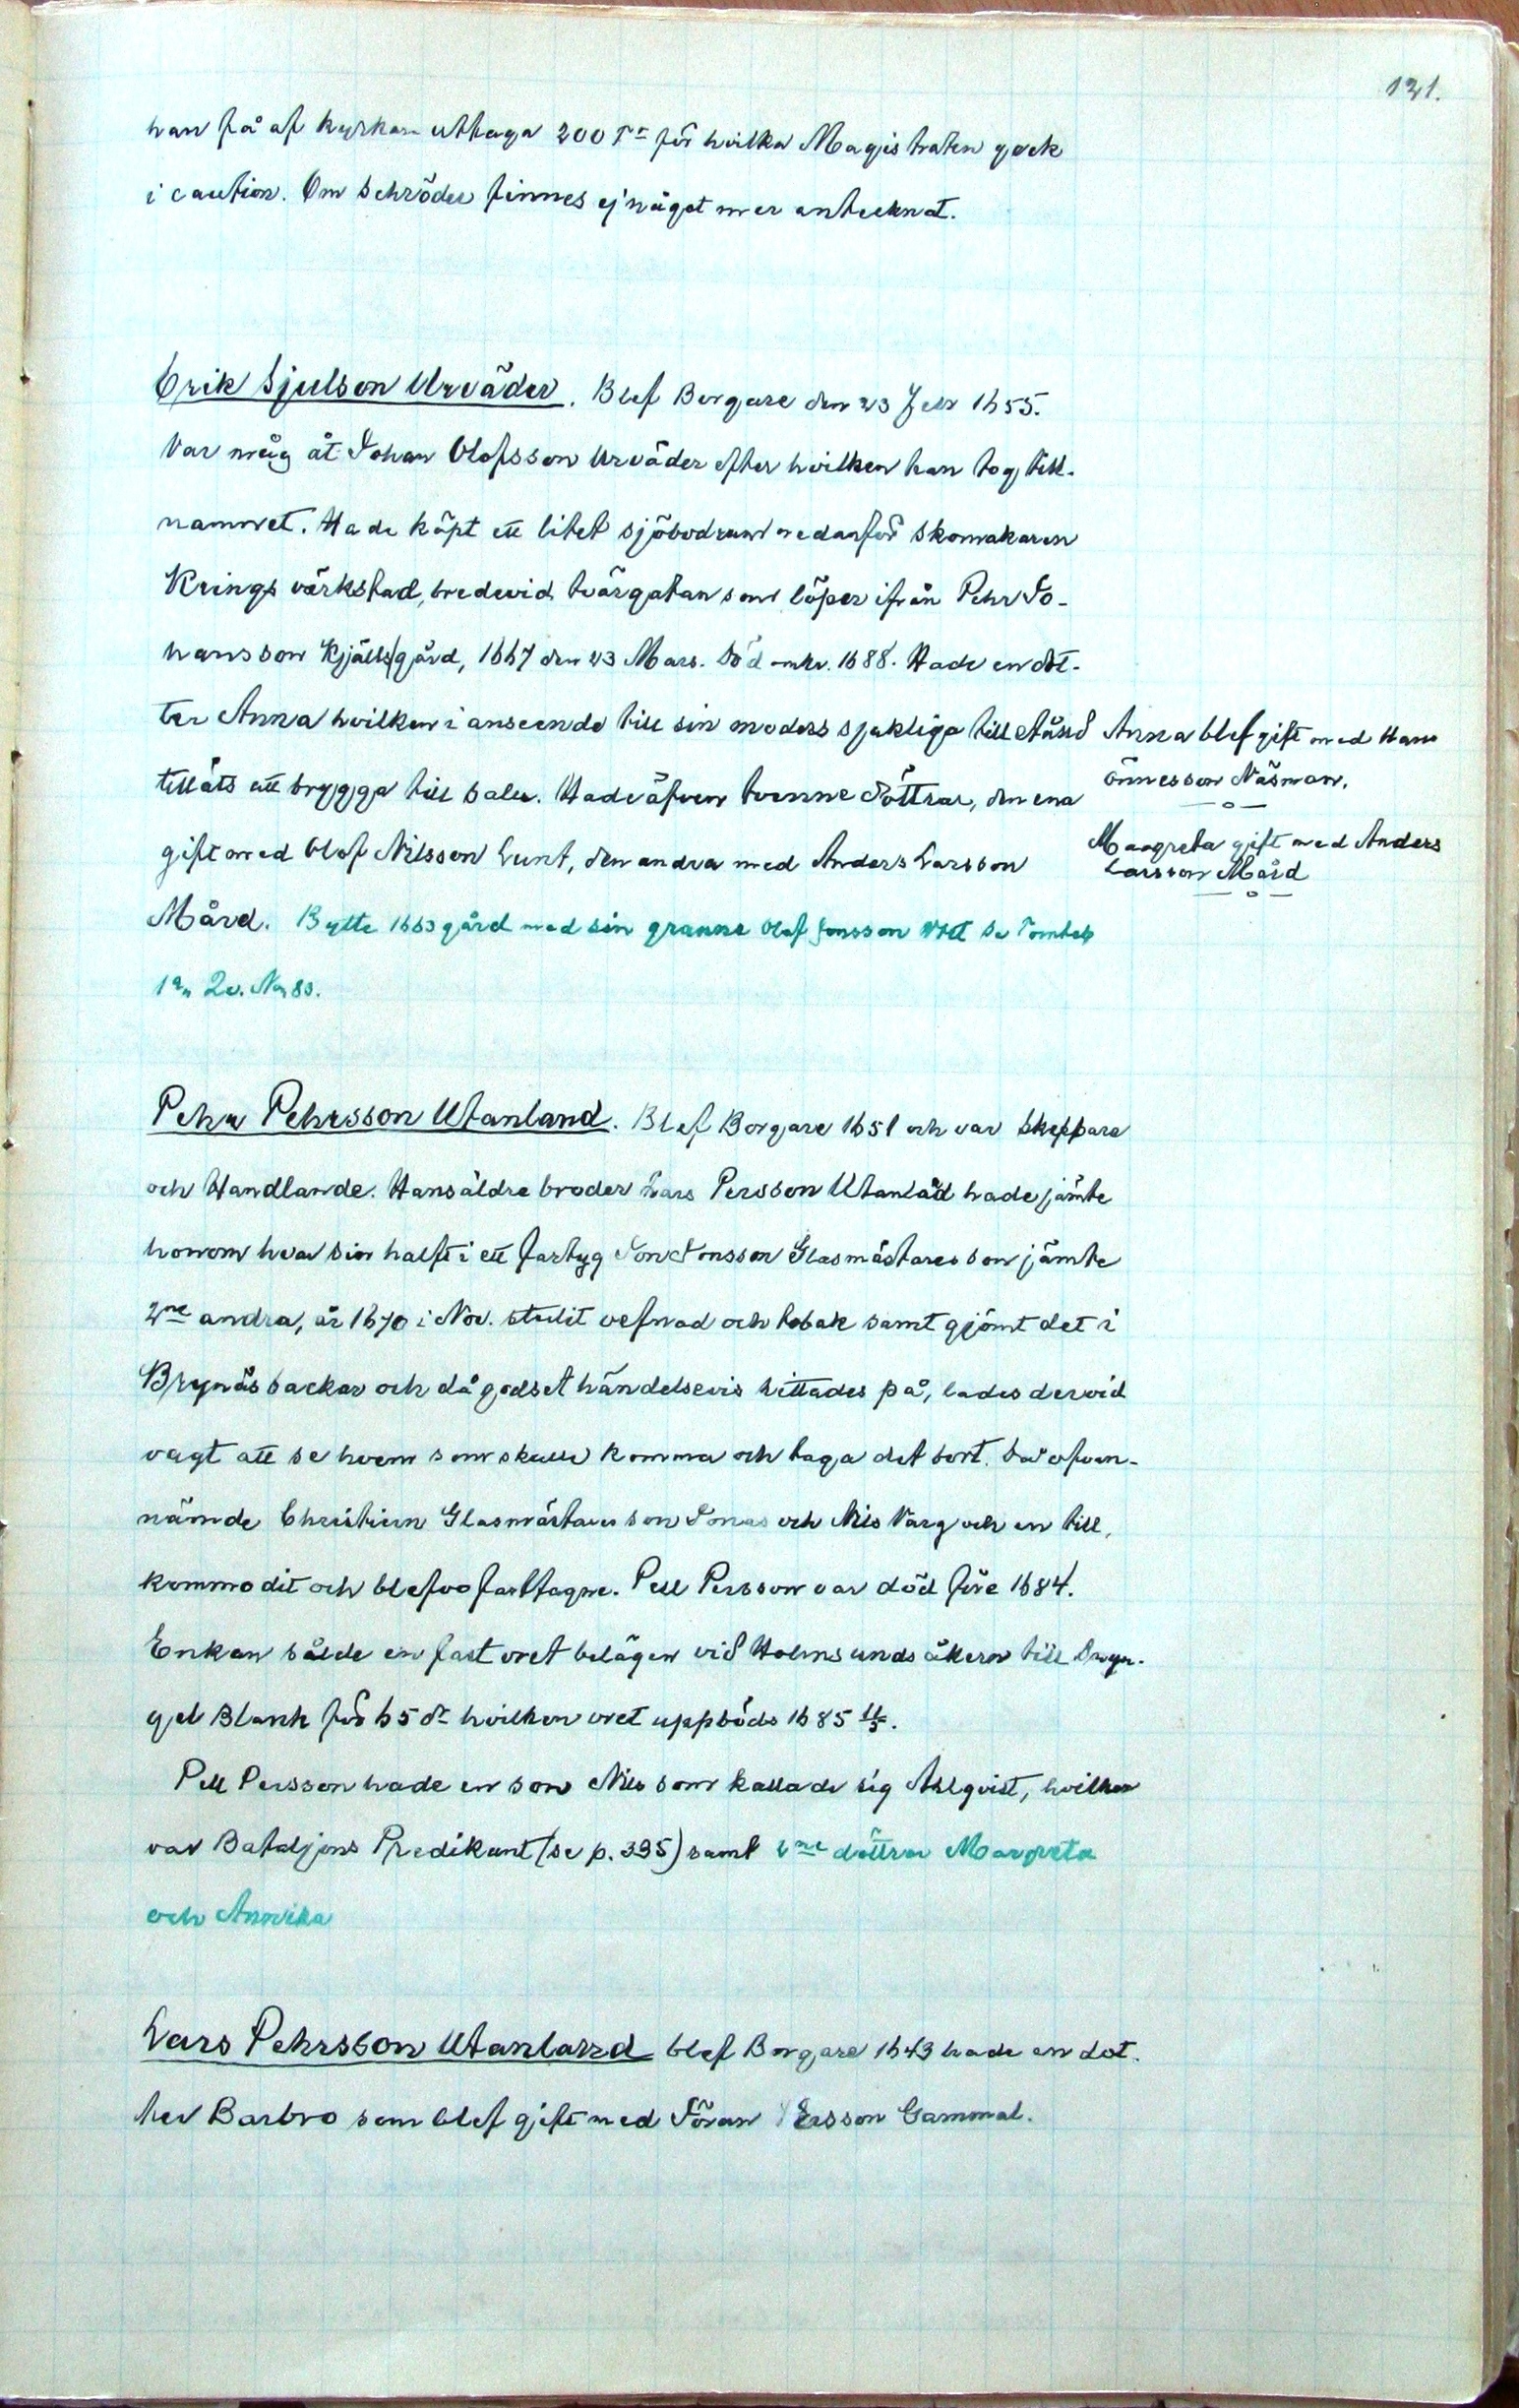 131.
han få af kyrkan uttaga 200 Dr för hvilka Magistraten geck
i caution. Om Schröder finnes ej något mer antecknat.
Erik Sjulson Urväder. Blef Borgare den 23 Febr 1655.
Var måg åt Johan Olofsson Urväder efter hvilken han tog till-
namnet. Hade köpt ett litet sjöbodrum nedanför skomakaren
Krings värkstad, bredevid tvärgatan som löper ifrån Pehr Jo-
hansson Kjälls gård, 1667 den 23 Mars. Död omkr. 1688. Hade en dot-
ter Anna hvilken i anseende till sin moders sjukliga tillstånd
tilläts att brygga till salu. Hade äfven tvenne döttrar, den ena
gift med Olof Nilsson Lunt, den andra med Anders Larsson
Mård. Bytte 1663 gård med sin granne Olof Jonsson Vret Se Tomteb
1a 2v. No 83.
Anna blef gift med Hans
Önnesson Näsman.
—o—
Maagreta gift med Anders
Larsson Mård
—o—
Pehr Pehrsson Utanland. Blef Borgare 1651 och var Skeppare
och Handlande. Hans äldre broder Lars Persson Utanland hade jämte
honom hvar sin halft i ett fartyg Jon Jonsson Glasmästares son jämte
2ne andra, år 1670 i Nov. stulit vefnad och tobak samt gjömt det i
Brynäs backar och då godset händelsevis hittades på, lades dervid
vagt att se hvem som skulle komma och taga det bort. Då ofvan-
nämde Christiern Glasmästares son Jonas och Nils Varg och en till,
kommo dit och blefvo fasttagne. Pell Persson var död före 1684.
Enkan sålde en fast vret belägen vid Holmsunds åkern till
gel Blank för 65 dr hvilken vret uppböds 1685 11/5.
Pell Persson hade en son Nils som kallade sig Ahlqvist, hvilken
var Bataljons Predikant (se p. 395) samt 2ne döttrar Margreta
och Annika
Lars Pehrsson Utanland blef Borgare 1643 hade en dot-
ter Barbro som blef gift med Jöran Ersson Gammal.